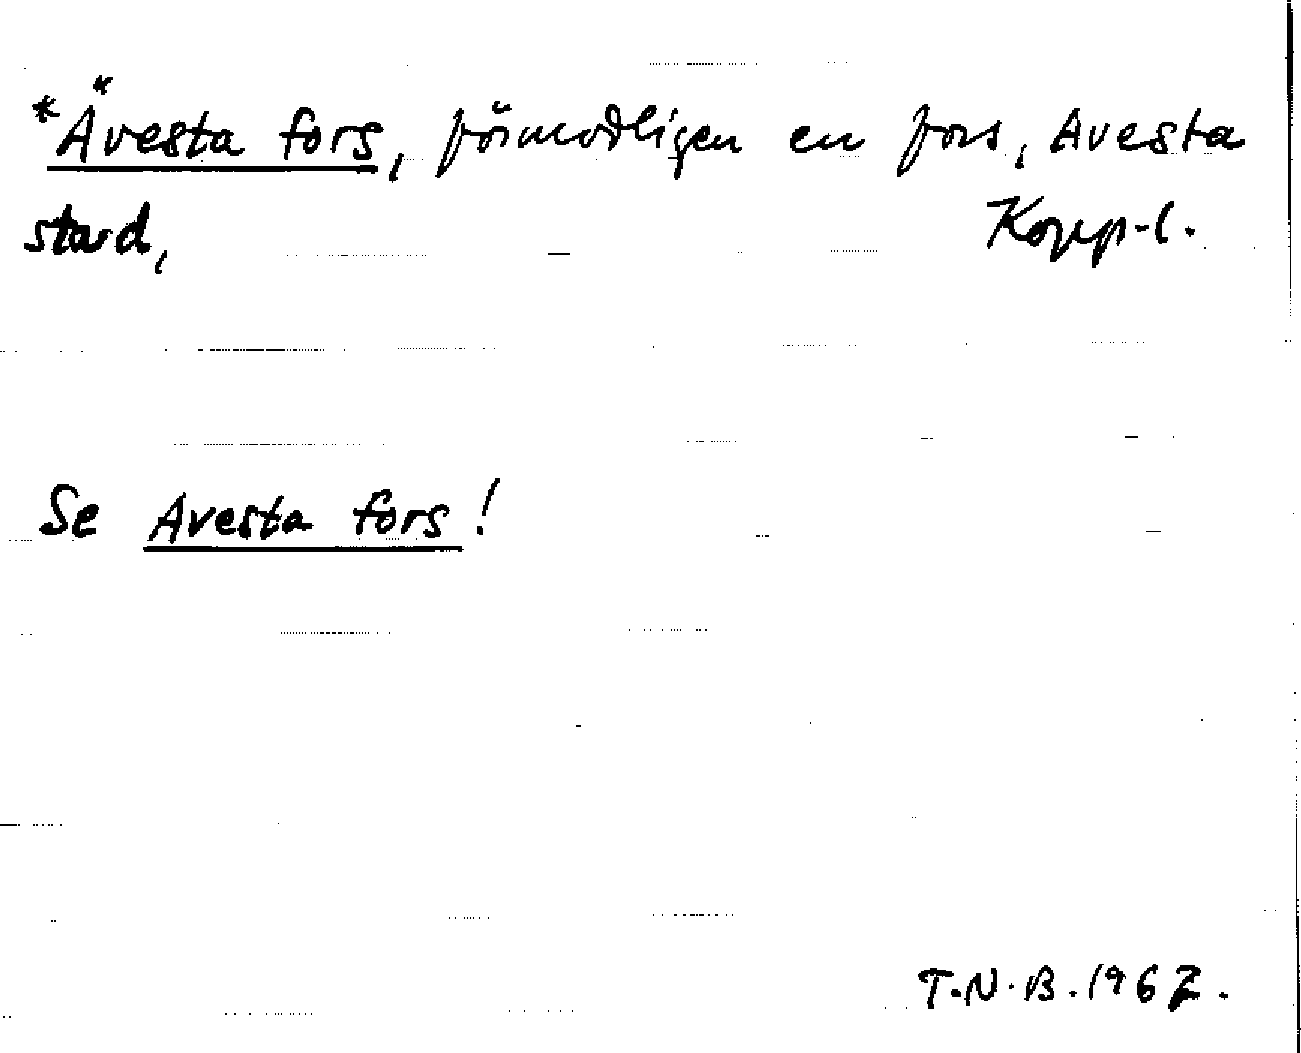 *Ävesta fors, förmodligen en fors, Avesta
stad, Kopp-l.
Se Avesta fors!
T.N.B. 1967.